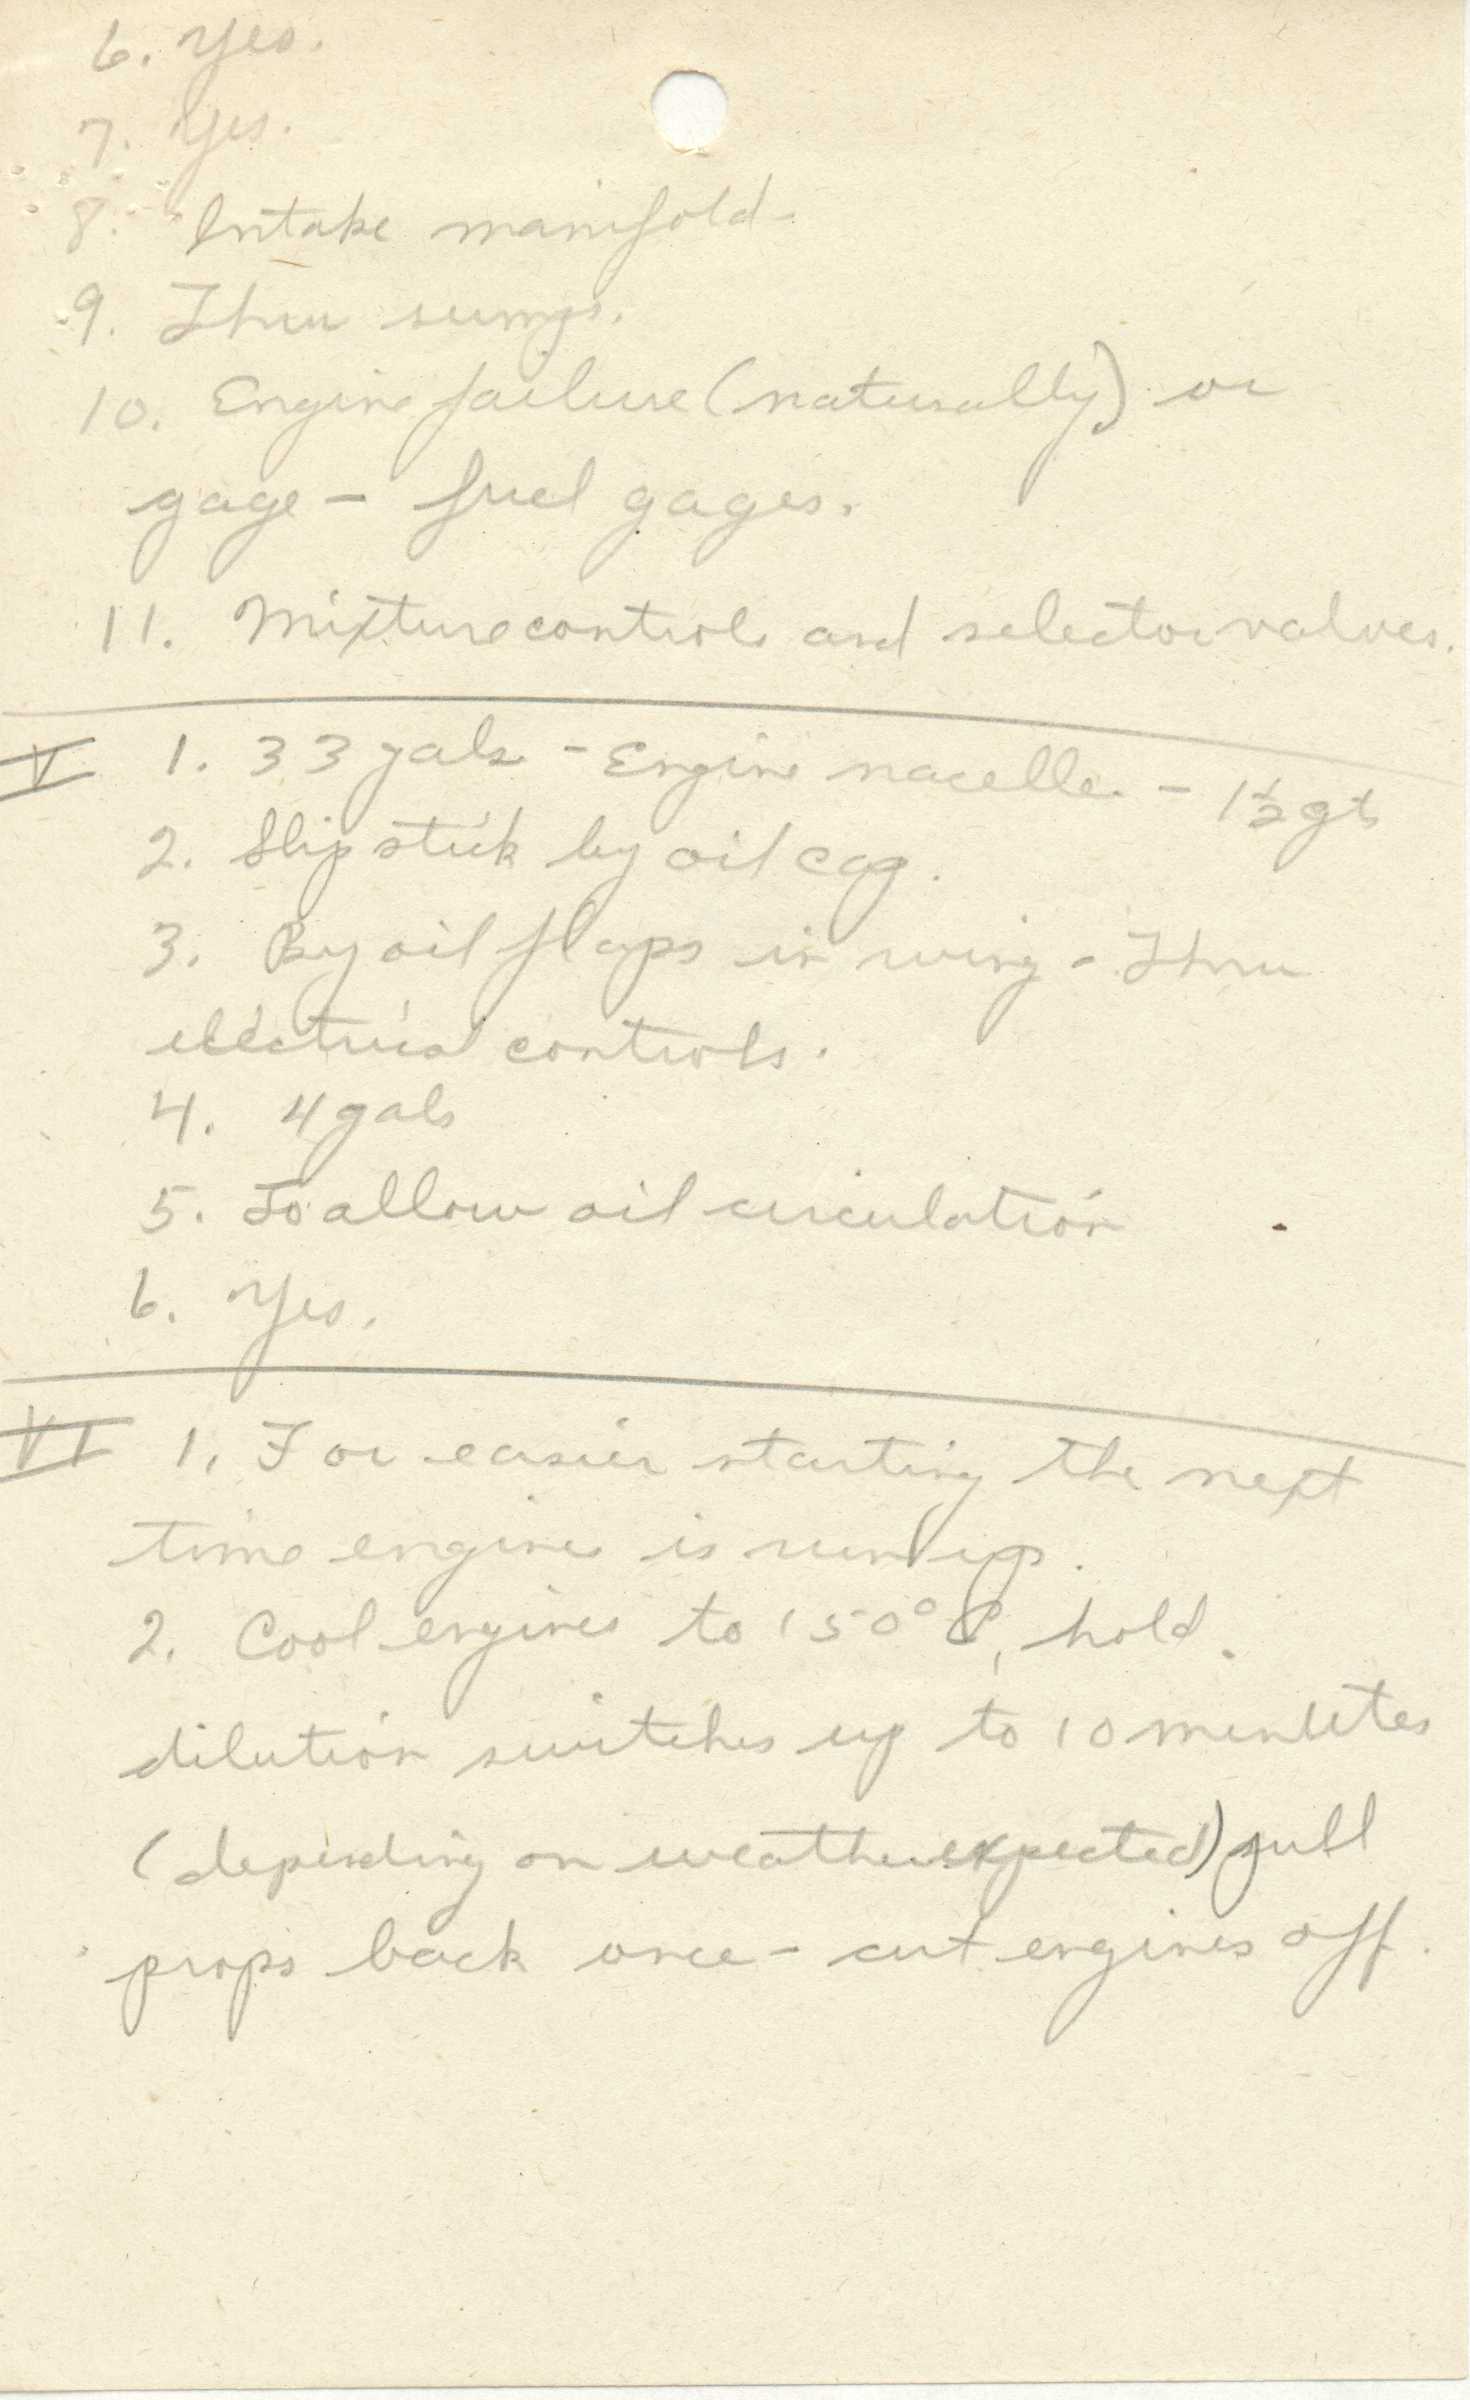 6. Yes.
7. Yes.
8. Intake manifold.
9. Thru sumps.
10. Engine failure (naturally) or
gage - fuel gages.
11. Mixture controls and selector valves.
V 1. 33 gals - Engine nacelle. - 1½ gts
2. Slip stick by oil cap.
3. By oil flaps in wing - Thru
electrical controls.
4. 4 gals
5. To allow oil circulation
6. Yes.
VI 1. For easier starting the next
time engine is run up.
2. Cool engines to 150° C, hold
dilution switches up to 10 minutes
(depending on weather expected) pull
props back once - cut engines off.